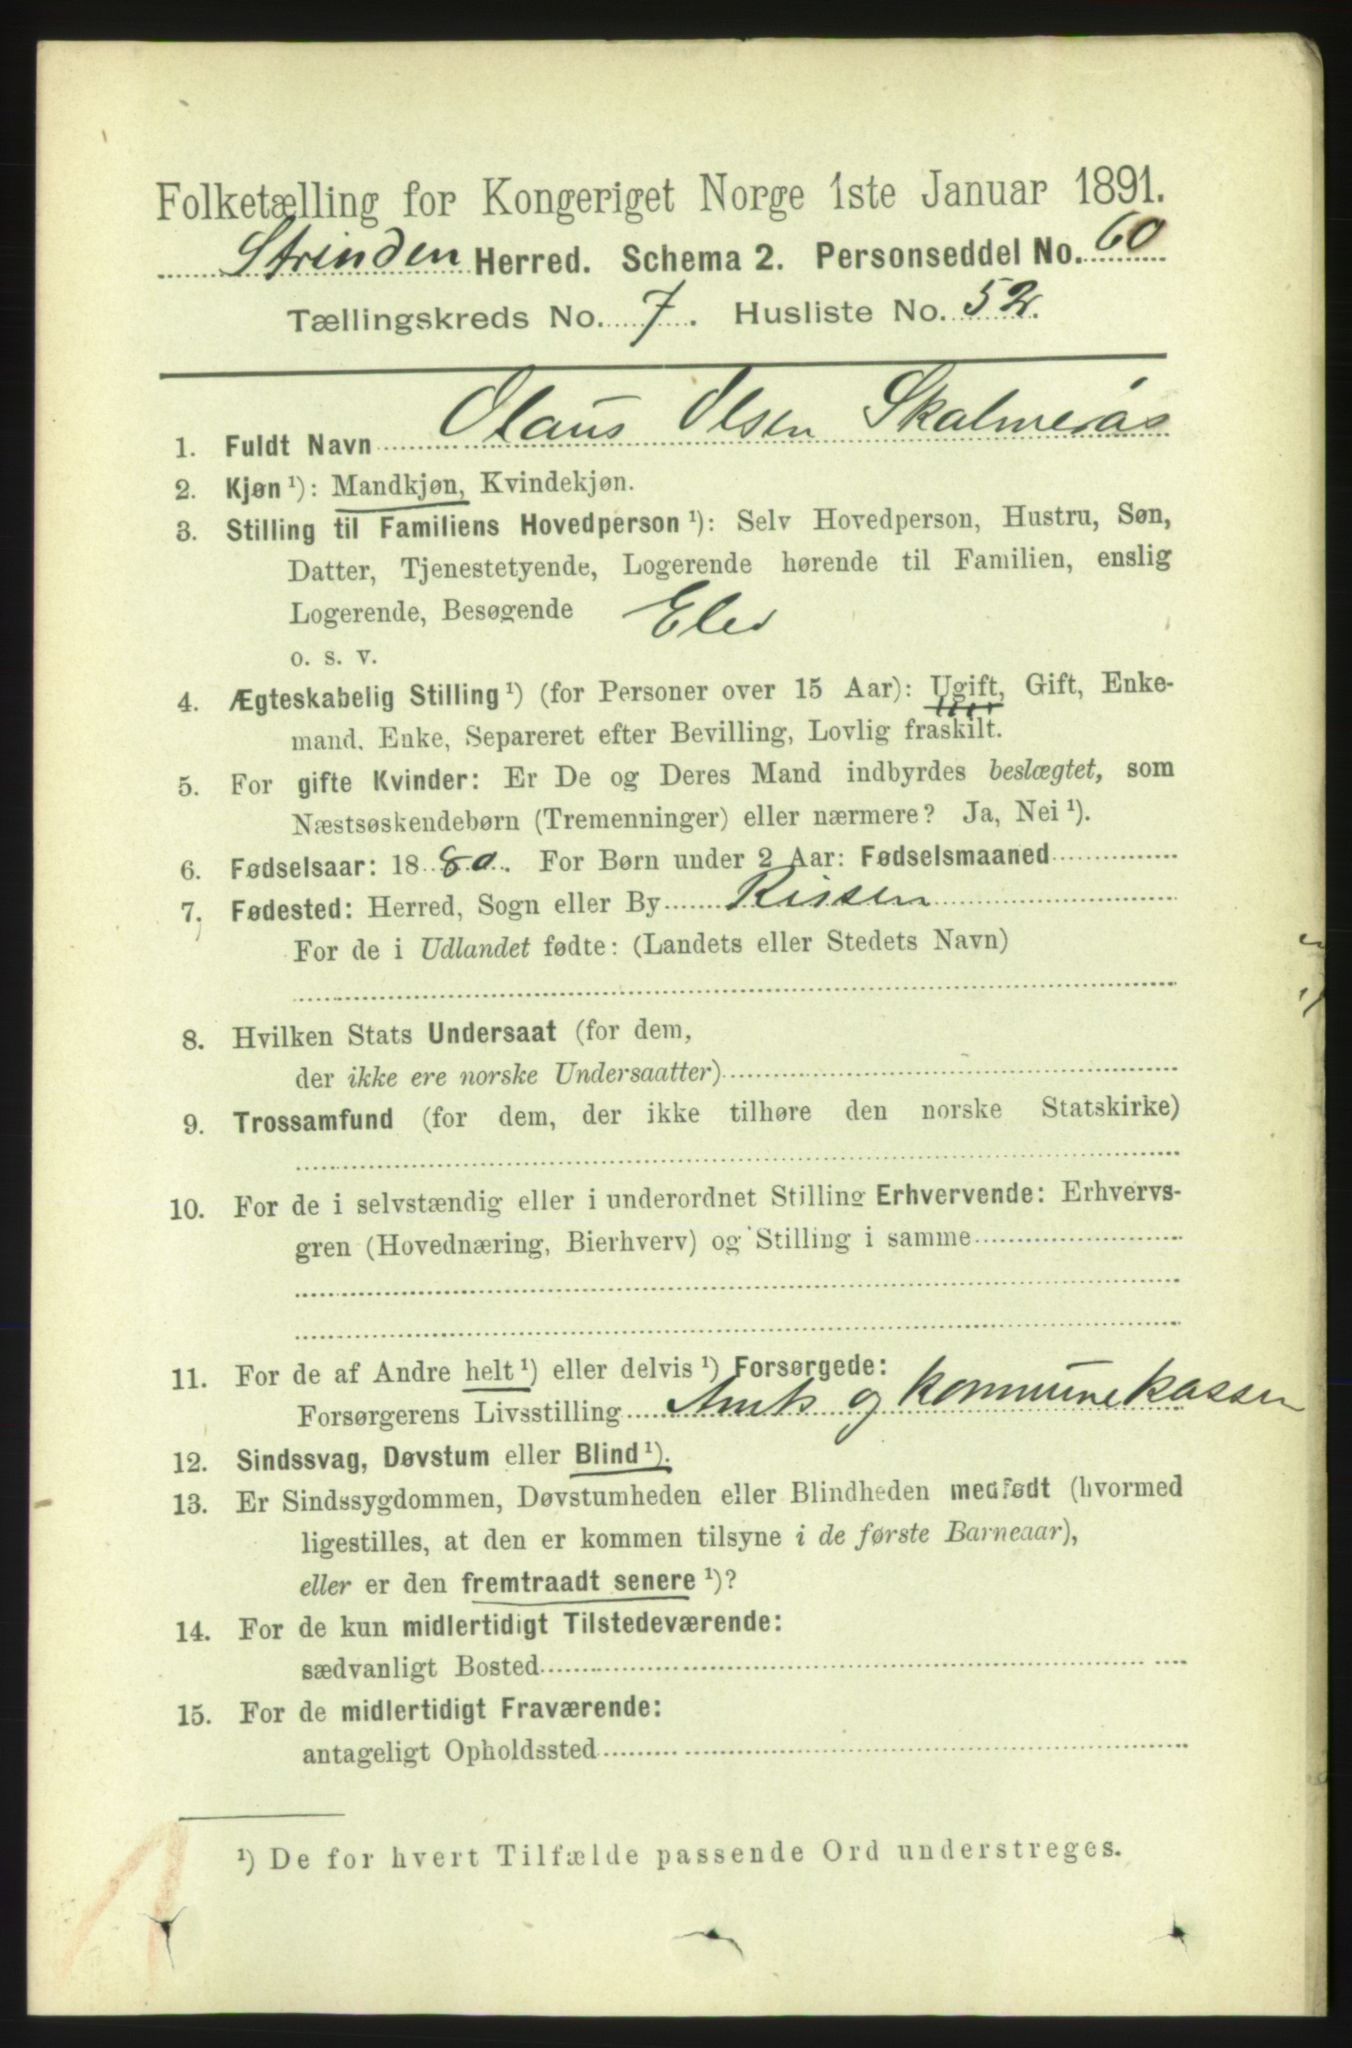 Folketælling for Kongeriget Norge 1ste Januar 1891.
Strinden Herred. Schema 2. Personseddel No. 60
Tællingskreds No. 7. Husliste No. 52.
1. Fuldt Navn Olaus Olsen Skalmerås
2. Kjøn ¹): Mandkjøn, Kvindekjøn.
3. Stilling til Familiens Hovedperson ¹): Selv Hovedperson, Hustru, Søn,
Datter, Tjenestetyende, Logerende hørende til Familien, enslig
Logerende, Besøgende Elev
o. s. v.
4. Ægteskabelig Stilling ¹) (for Personer over 15 Aar): Ugift, Gift, Enke-
mand, Enke, Separeret efter Bevilling, Lovlig fraskilt.
5. For gifte Kvinder: Er De og Deres Mand indbyrdes beslægtet, som
Næstsøskendebørn (Tremenninger) eller nærmere? Ja, Nei ¹).
6. Fødselsaar: 1880. For Børn under 2 Aar: Fødselsmaaned
7. Fødested: Herred, Sogn eller By Rissen
For de i Udlandet fødte: (Landets eller Stedets Navn)
8. Hvilken Stats Undersaat (for dem,
der ikke ere norske Undersaatter)
9. Trossamfund (for dem, der ikke tilhøre den norske Statskirke)
10. For de i selvstændig eller i underordnet Stilling Erhvervende: Erhvervs-
gren (Hovednæring, Bierhverv) og Stilling i samme
11. For de af Andre helt ¹) eller delvis ¹) Forsørgede:
Forsørgerens Livsstilling Amts og kommunekassen
12. Sindssvag, Døvstum eller Blind ¹).
13. Er Sindssygdommen, Døvstumheden eller Blindheden medfødt (hvormed
ligestilles, at den er kommen tilsyne i de første Barneaar),
eller er den fremtraadt senere ¹)?
14. For de kun midlertidigt Tilstedeværende:
sædvanligt Bosted
15. For de midlertidigt Fraværende:
antageligt Opholdssted
¹) De for hvert Tilfælde passende Ord understreges.